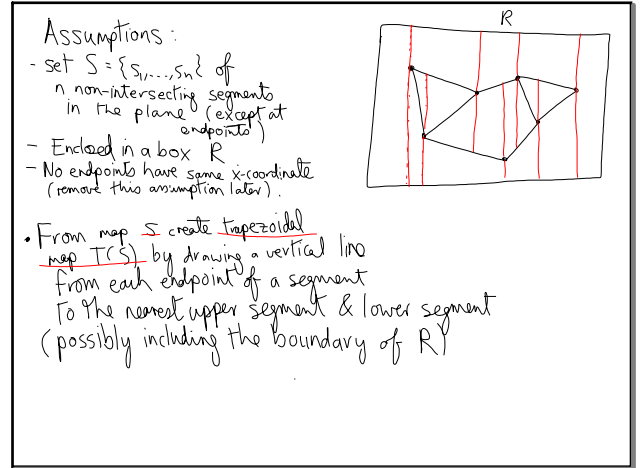 Assumptions:
- set S = {s1,...,sn} of
n non-intersecting segments
in the plane (except at
endpoints)
- Enclosed in a box R
- No endpoints have same x-coordinate
(remove this assumption later).
• From map S create trapezoidal
map T(S) by drawing a vertical line
from each endpoint of a segment
To the nearest upper segment & lower segment
(possibly including the boundary of R)
R